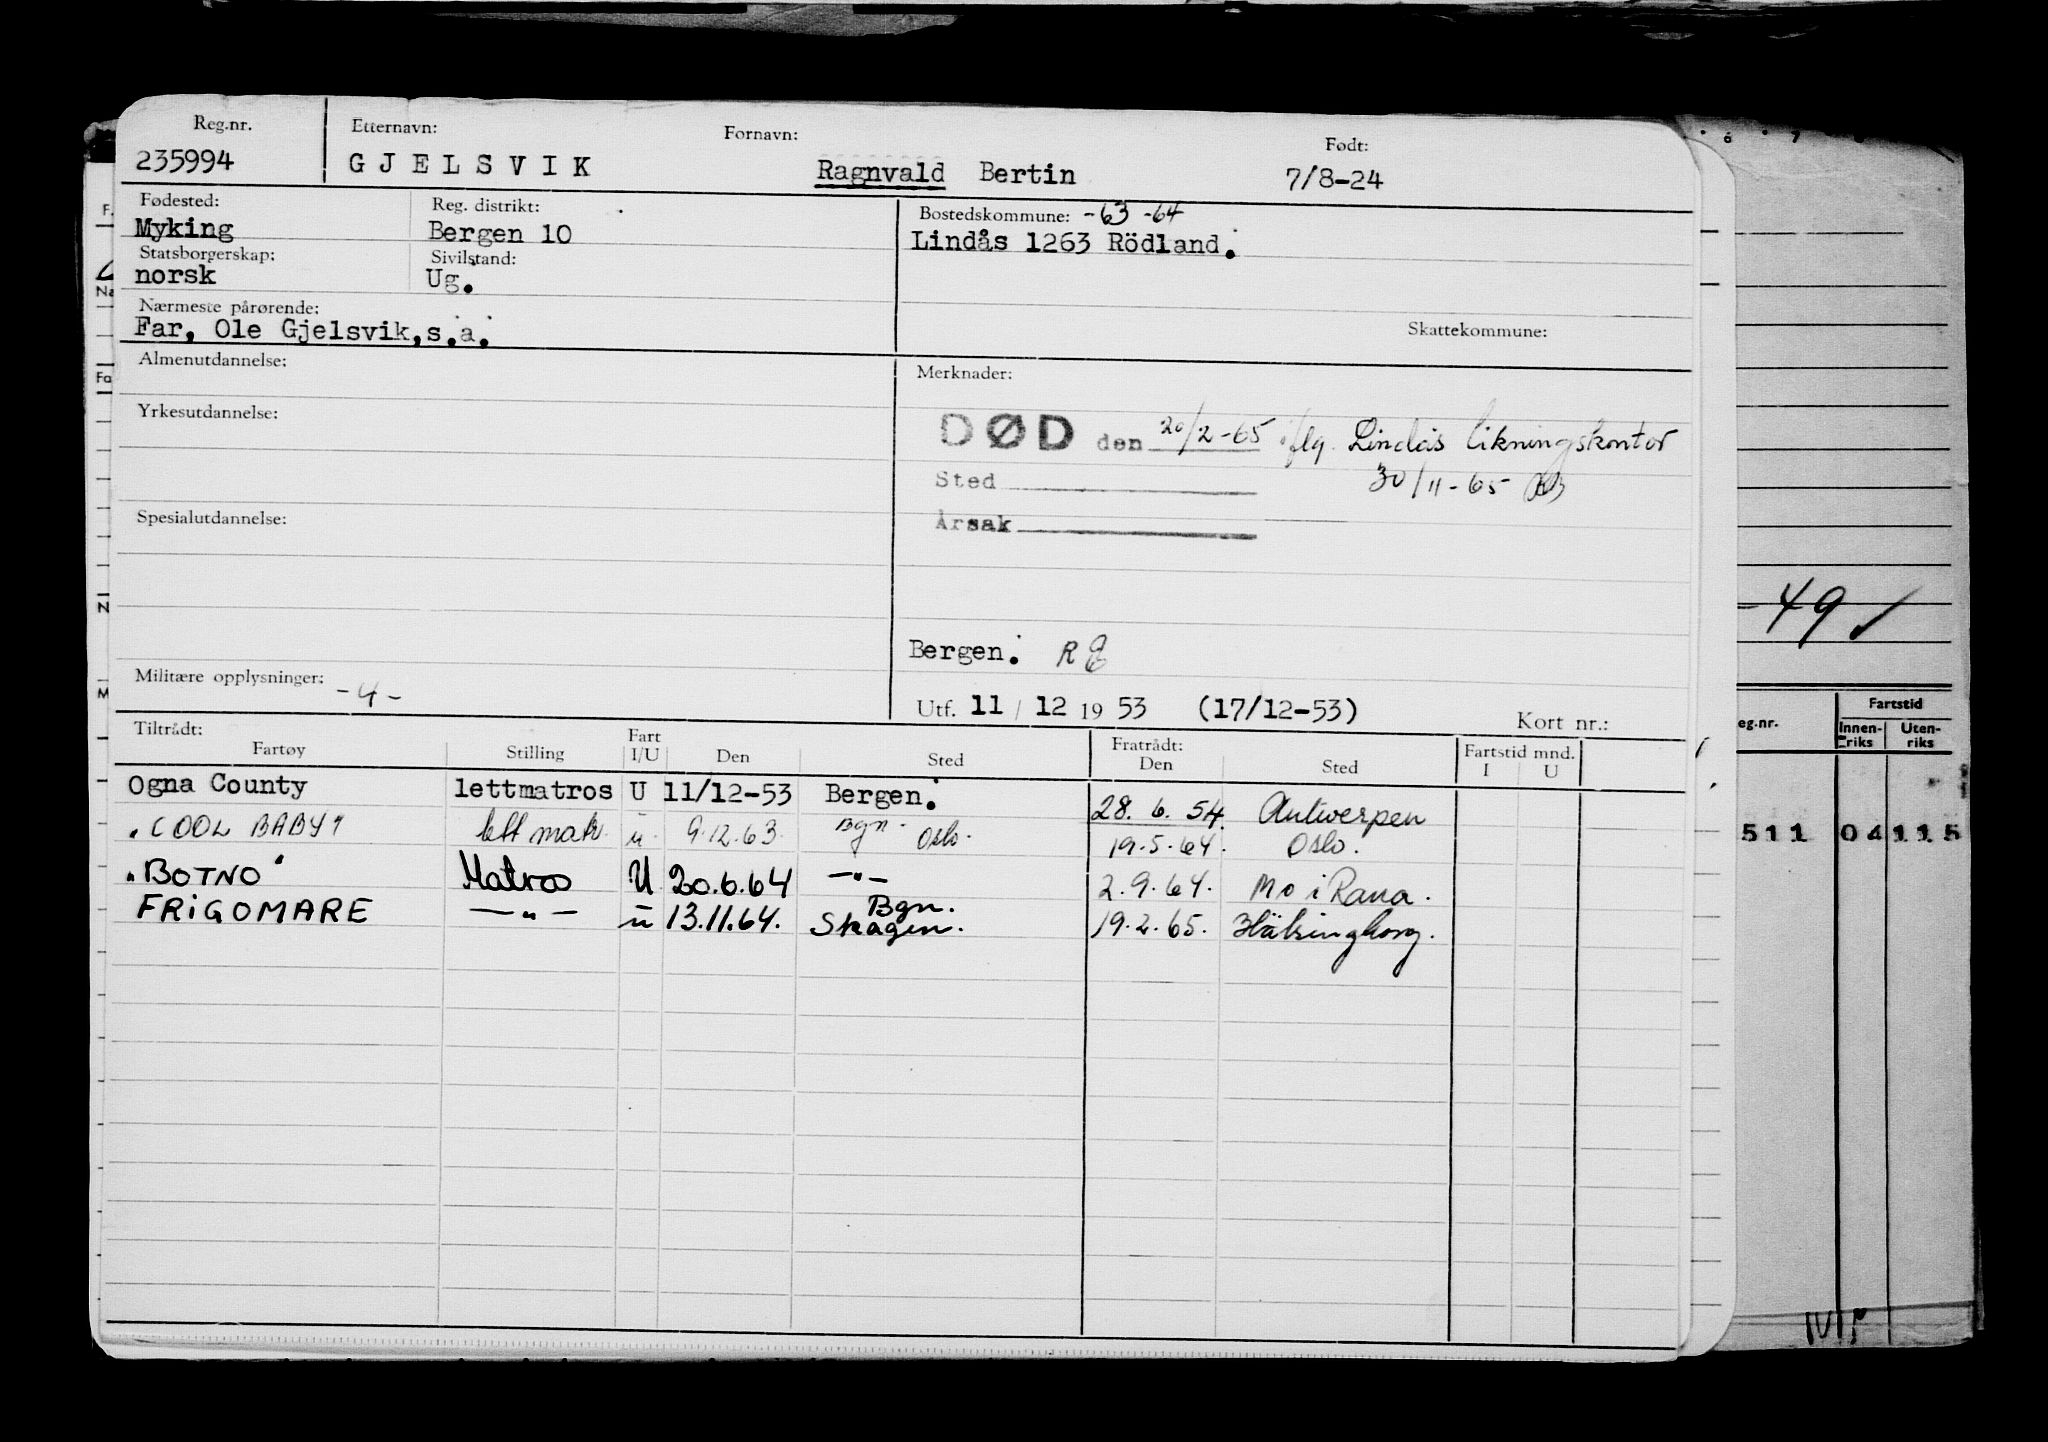 Reg.nr. Etternavn: Fornavn: Født:
235994 GJELSVIK Ragnvald Bertin 7/8-24
Fødested: Reg. distrikt: Bostedskommune: -63 -64
Myking Bergen 10 Lindås 1263 Rödland.
Statsborgerskap: Sivilstand:
norsk Ug.
Nærmeste pårørende:
Far, Ole Gjelsvik,s.a. Skattekommune:
Almenutdannelse: Merknader:
Yrkesutdannelse:
DØD den 20/2-65 iflg. Lindås likningskontor
Sted 30/11-65
Årsak
Spesialutdannelse:
Bergen.
Militære opplysninger: -4-
Utf. 11 / 12 19 53 (17/12-53) Kort nr.:
Tiltrådt: Fart Fratrådt: Fartstid mnd.
Fartøy Stilling I/U Den Sted Den Sted I U
Ogna County lettmatros U 11/12-53 Bergen. 28. 6. 54. Antwerpen
"COOL BABY" lett matr. u. 9.12.63. Bgn. Oslo. 19.5.64. Oslo.
"BOTNO" Matros U 20.6.64 —"— 2.9.64. Mo i Rana.
FRIGOMARE —"— u 13.11.64. Bgn. Skagen. 19.2.65. Hälsingborg.
F.
Na
Fa
N
M
6 7
-49 ✓
Fartstid
eg.nr. Innenriks Utenriks
511 04 115